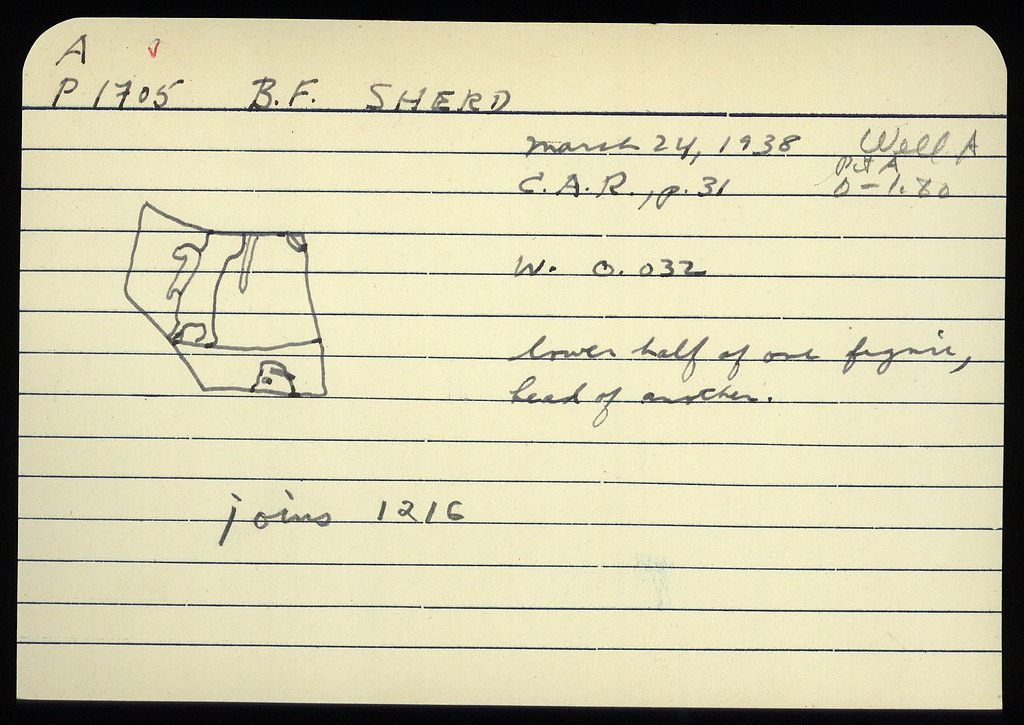 A
P 1705 B.F. SHERD
March 24, 1938 Well A
C.A.R., p. 31 Pit A 0-1.80
W. 0.032
lower half of one figure,
head of another.
joins 1216